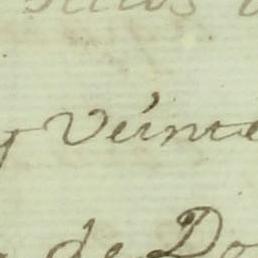 y Veinte
de Do